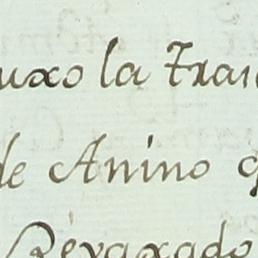 uxo la trai
de Anino q
Revaxado